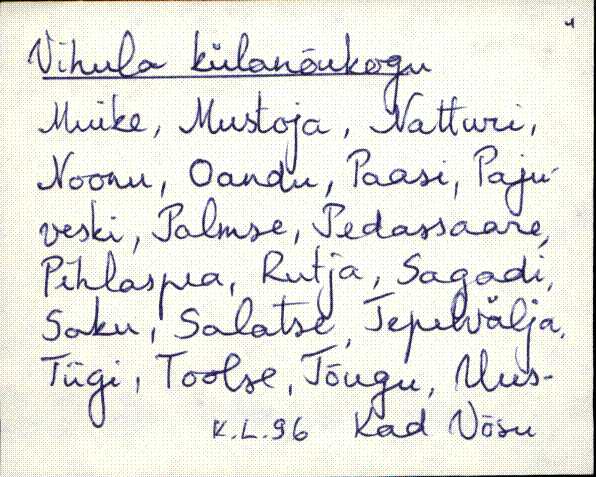 Vihula külanõukogu
Muike, Mustoja, Natturi,
Noonu, Oandu, Paasi, Paju-
veski, Palmse, Pedassaare,
Pihlaspea, Rutja, Sagadi,
Saku, Salatse, Tepelvälja,
Tiigi, Toolse, Tõugu, Uus-
K.L.96 Kad Võsu